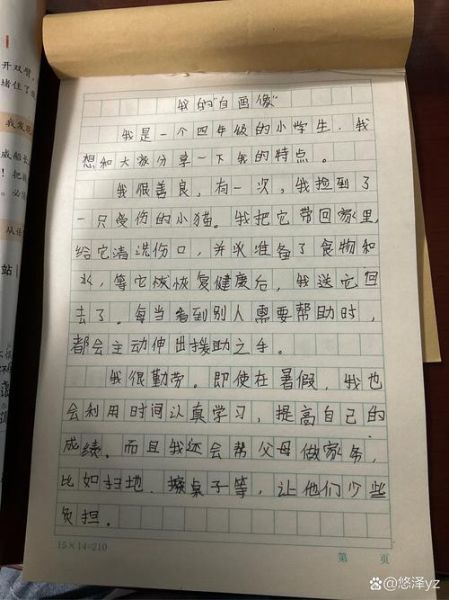 我的“自画像”
我是一个四年级的小学生，我
想和大家分享一下我的特点。
我很善良，有一次，我捡到了
一只受伤的小猫。我把它带回家里，
给它清洗伤口，并准备了食物和
水，等它恢复健康后，我送它回
去了。每当看到别人需要帮助时，
都会主动伸出援助之手。
我很勤劳。即使在暑假，我也
会利用时间认真学习，提高自己的
成绩。而且我还会帮父母做家务，
比如扫地、擦桌子等，让他们少些
负担。
15×14=210
第 页
开双臂，
堵住了
我发现
威船长
把
必须
从
站
@悠泽yz